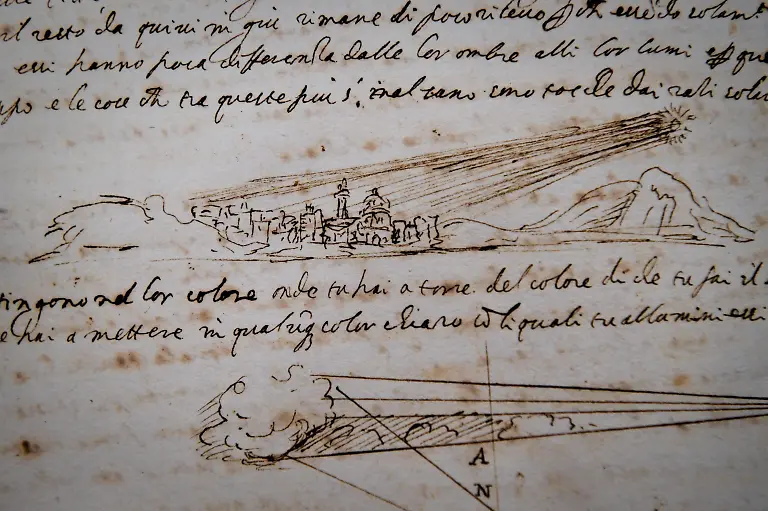 il resto da quivi in giù rimane di poco rilievo
essi hanno poca differenza dalle lor ombre alli lor lumi e que
e le cose ch tra queste più s' inalzano sono tocche dai rali sola
tingono nel lor colore onde tu hai a torre del colore di che tu fai il
e hai a mettere in qualuq color chiaro cō li quali tu allumini essi
A
N